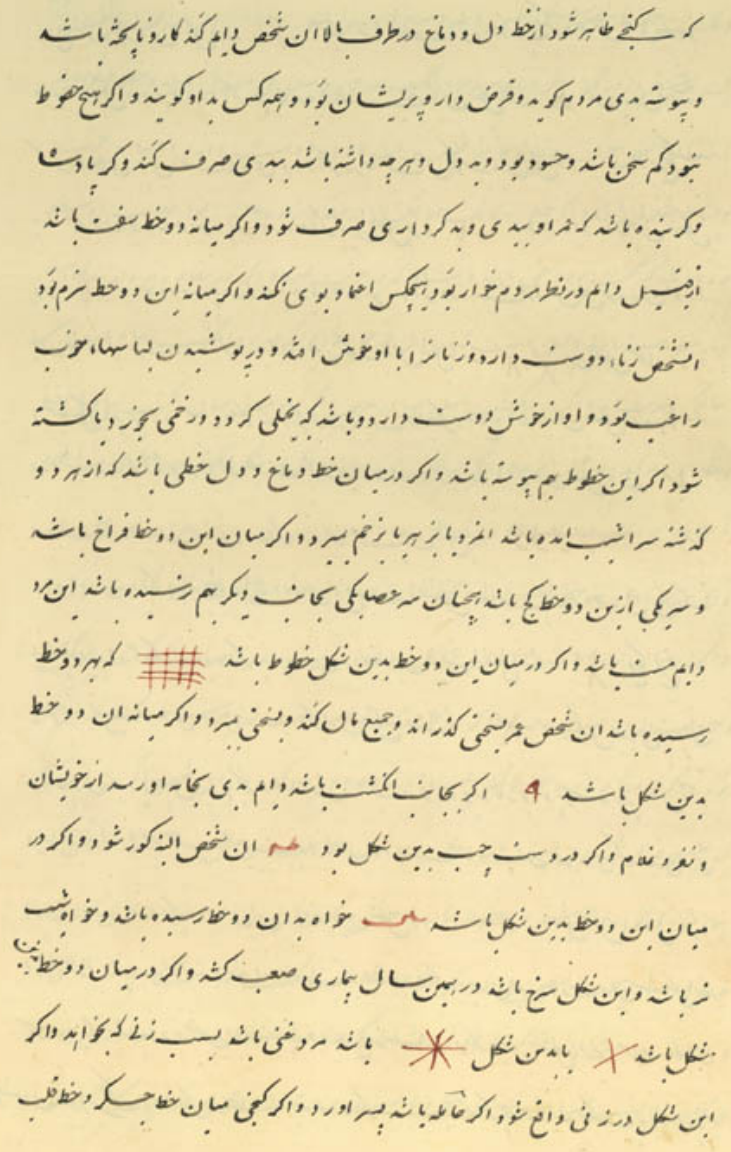 که کنجی ظاهر شود از خط دل و دماغ در طرف بالا ان شخص دایم کند کار و نابحثه باشد
و پیوسته بدی مردم کوید و قرض دار و پریشان بود و همه کس بد او کویند و اکر هیچ خطوط
نبود کم سخن باشد و حسود بود و بد دل و هر چه داشته باشد ببدی صرف کند و کر پادشا
و کر بنده باشد که عمر او ببدی و بد کرداری صرف شود و اکر میانه دو خط سفت باشد
دایم در نظر مردم خوار بود و هیچکس اعتماد بوی نکند و اکر میانه این دو خط نرم بود
انشخص زنان دوست دارد و زنانرا با او خوش افتد و در پوشیدن لباسهاء خوب
راغب بود و اواز خوش دوست دارد و باشد که
شود اکر این خطوط بهم پیوسته باشد و اکر در میان خط دماغ و دل خطی باشد که از هر دو
کذشته باشد یا بزهر یا بزخم میرد و اکر میان این دو خط فراخ باشد
و سر یکی ازین دو خط کج باشد همچنان سر عصا یکی بجانب دیکر بهم رسیده باشد این مرد
دایم مست باشد و اکر در میان این دو خط بدین شکل خطوط باشد که بهر دو خط
رسیده باشد ان شخص عمر بسختی کذراند و جمیع مال کند و بسختی میرد و اکر میانه ان دو خط
بدین شکل باشد ۹ اکر بجانب انکشت باشد دایم بدی بخانه او رسد از خویشان
و نفر و غلام و اکر در دست چپ بدین شکل بود ان شخص البته کور شود و اکر در
میان این دو خط بدین شکل باشد خواه بدان دو خط رسیده باشد و خواه
نر باشد و این شکل سرخ باشد در همین سال بیماری صعب کشد و اکر در میان دو خط بدین
شکل باشد یا بدین شکل باشد مرد غنی باشد بسبب زنی که بخواهد و اکر
این شکل در زنی واقع شود اکر حامله باشد پسر اورد و اکر کنجی میان خط جکر و خط قلب